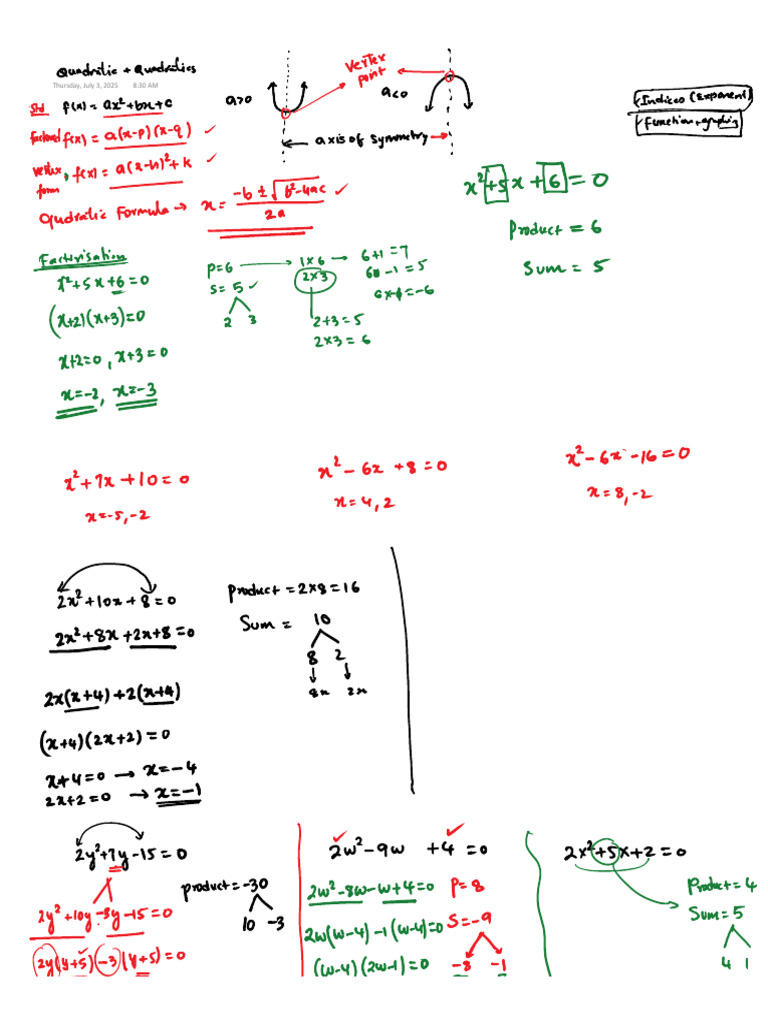 Quadratic + Quadratics
Thursday, July 3, 2025 8:30 AM
Std f(x) = ax²+bx+c
factored f(x) = a(x-p)(x-q) ✓
vertex form, f(x) = a(x-h)²+k ✓
Quadratic Formula → x = (-b ± √(b²-4ac)) / 2a ✓
a>0
vertex point
a<0
axis of symmetry
Indices (Exponent)
✓ Function + graphing
x²+5x+6=0
Product = 6
Sum = 5
Factorisation
x²+5x+6=0
(x+2)(x+3)=0
x+2=0, x+3=0
x=-2, x=-3
P=6 → 1×6 → 6+1=7
S=5 ✓ 2×3 6-1=5
2 3
2+3=5
2×3=6
x²+7x+10=0
x=-5,-2
x²-6x+8=0
x=4,2
x²-6x-16=0
x=8,-2
2x²+10x+8=0
2x²+8x+2x+8=0
2x(x+4)+2(x+4)
(x+4)(2x+2)=0
x+4=0 → x=-4
2x+2=0 → x=-1
Product = 2×8=16
Sum = 10
8 2
8x 2x
2y²+7y-15=0
2y²+10y-3y-15=0
2y(y+5)(-3)(y+5)=0
product=-30
10 -3
2w²-9w +4=0
2w²-8w-w+4=0
2w(w-4)-1(w-4)=0
(w-4)(2w-1)=0
P=8
S=-9
-8 -1
2x²+5x+2=0
Product = 4
Sum=5
4 1